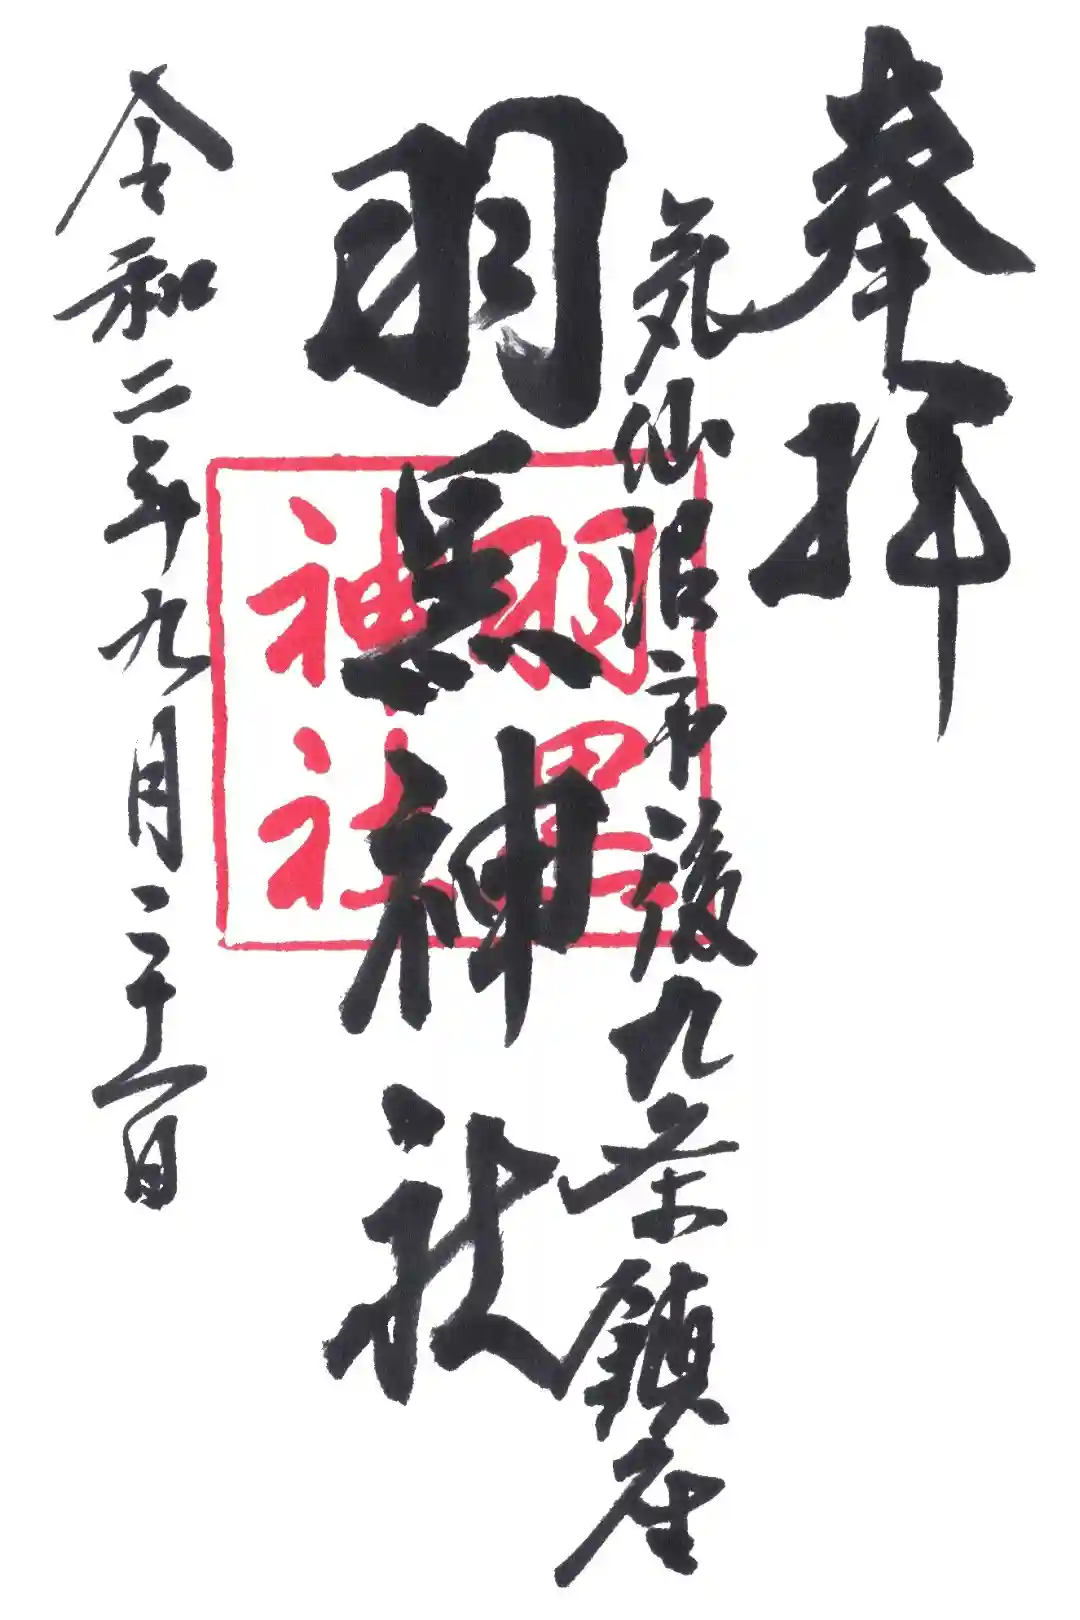 奉拝
気仙沼市後九条鎮座
羽黒神社
令和二年九月二十一日
羽黒
神社